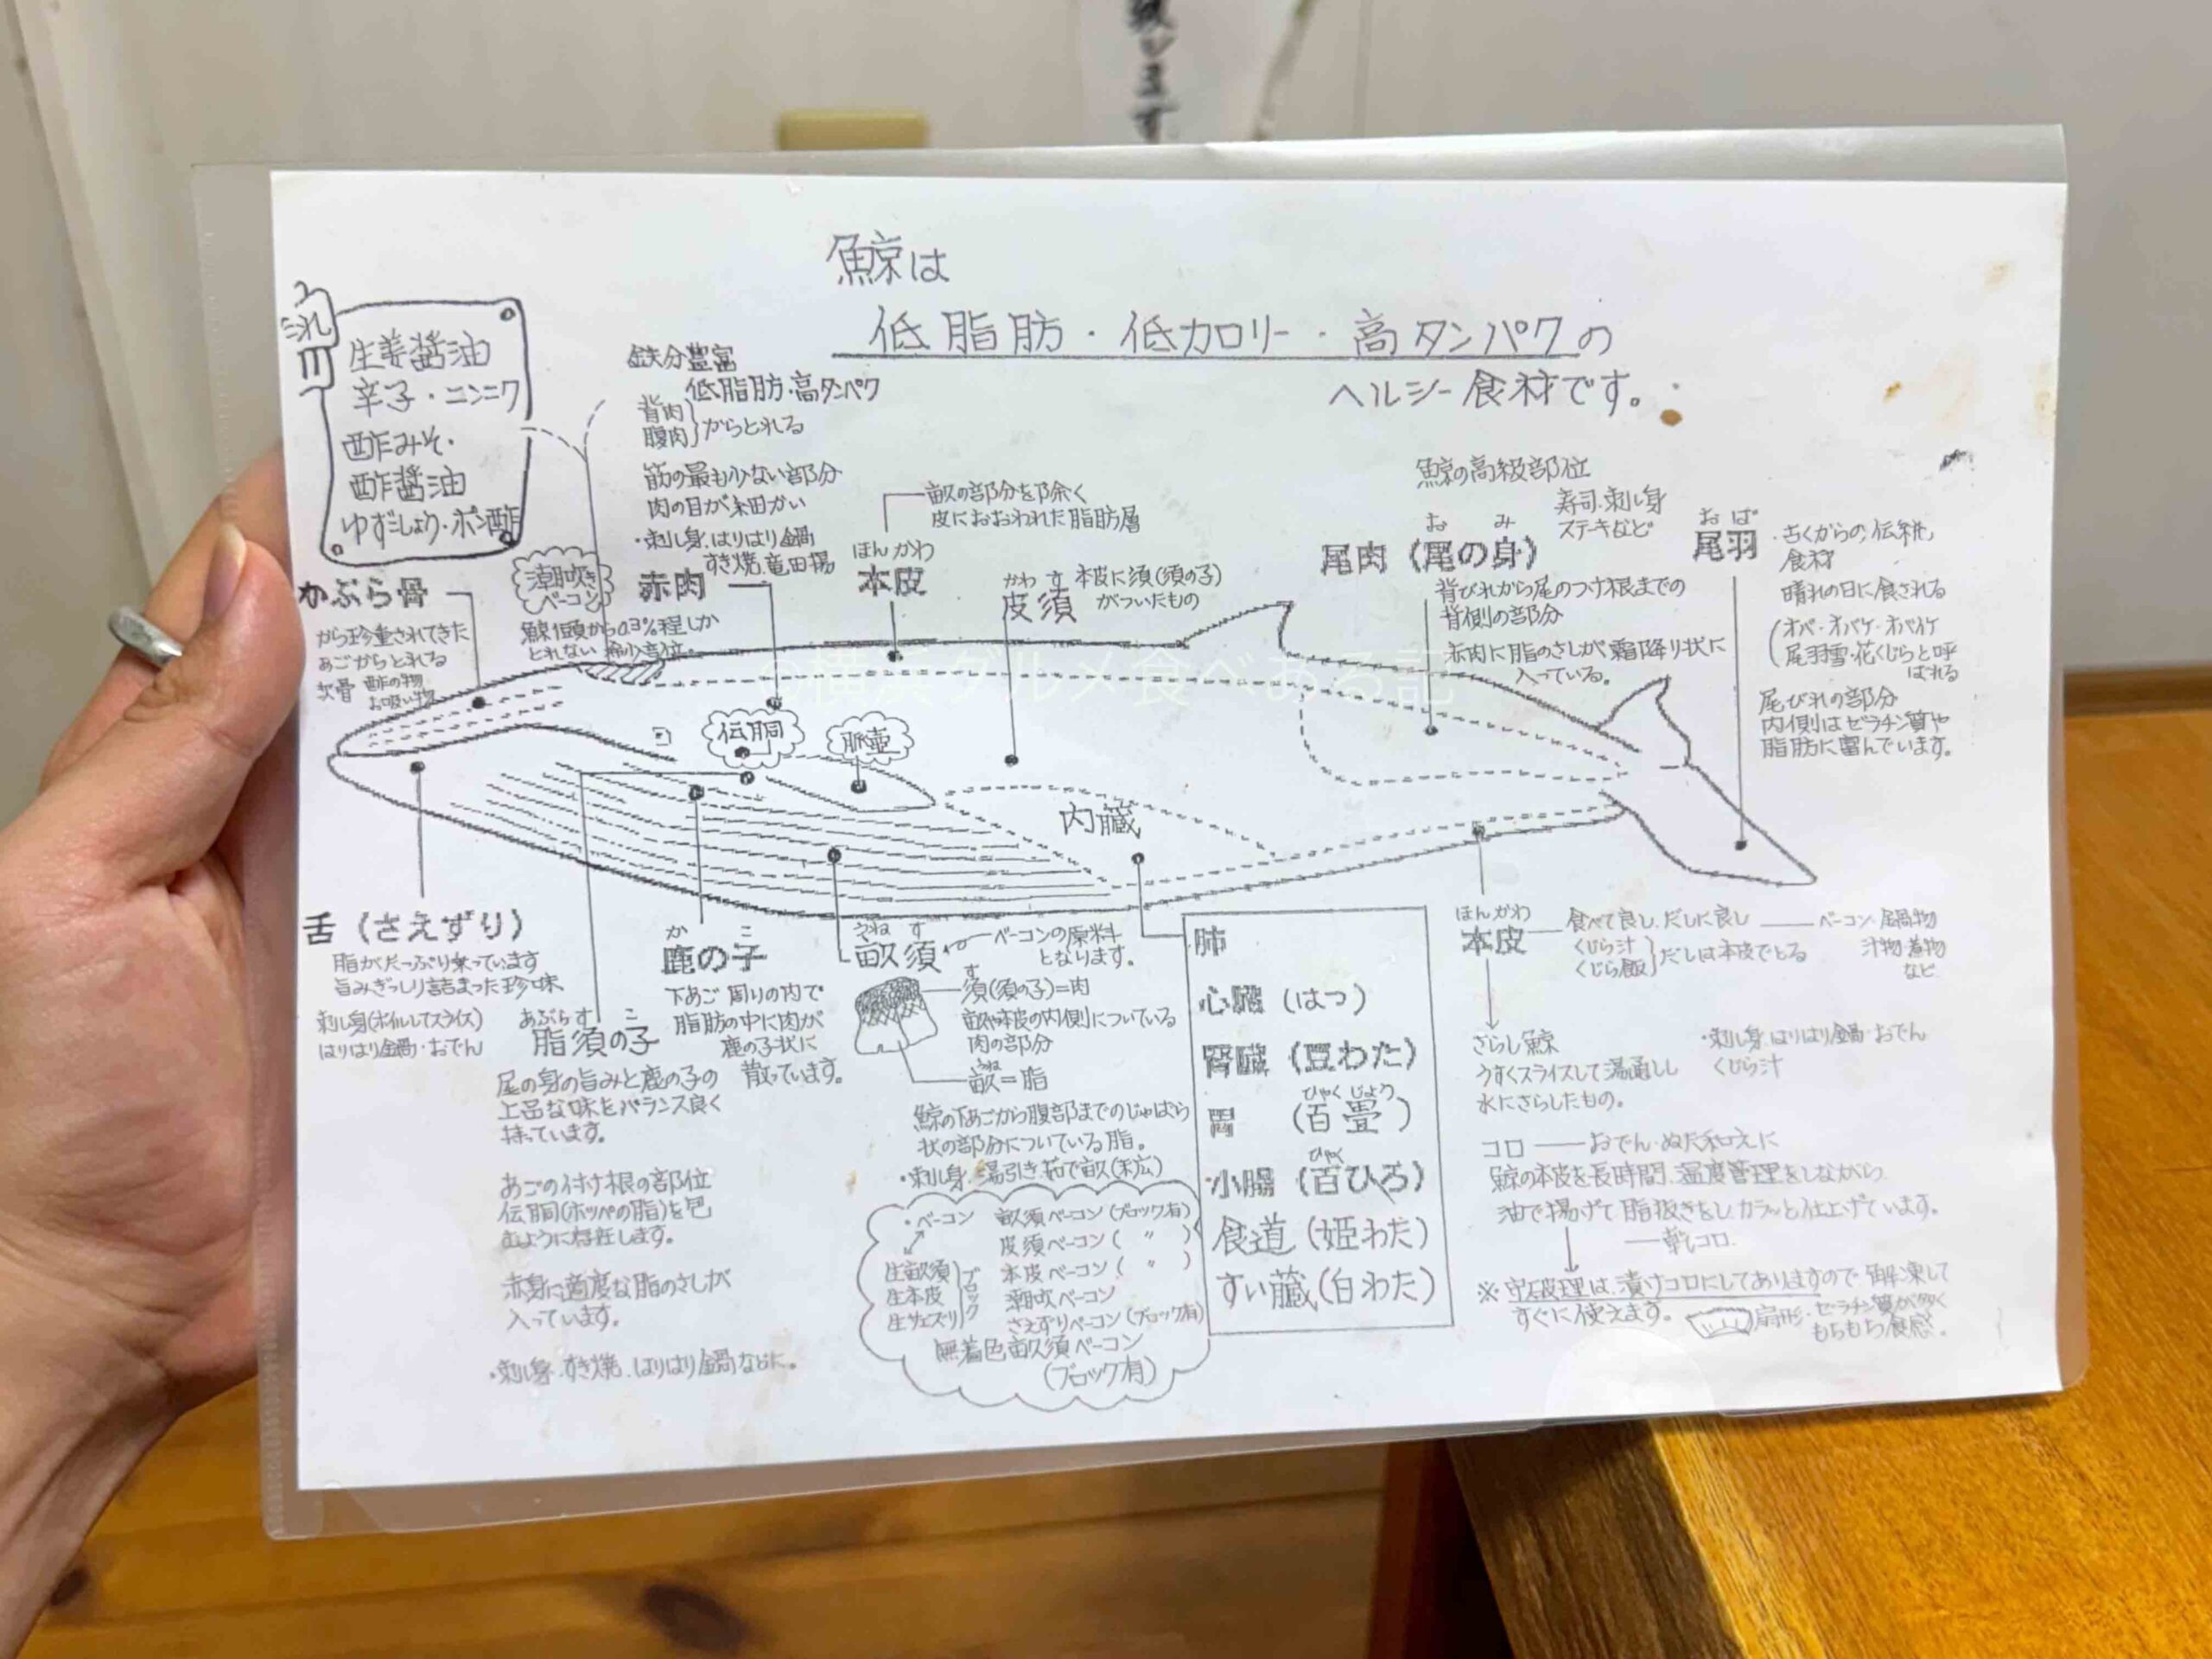 鯨は
低脂肪・低カロリー・高タンパクの
ヘルシー食材です。
生姜醤油
辛子・ニンニク
酢みそ・
酢醤油
ゆずこしょう・ポン酢
鉄分豊富
低脂肪・高タンパク
背肉
腹肉
からとれる
筋の最も少ない部分
肉の目が細かい
・刺し身.はりはり鍋
すき焼.竜田揚
赤肉
かぶら骨
から珍重されてきた
あごからとれる
軟骨 酢の物
お吸い物
潮吹き
ベーコン
鯨1頭から0.3%程しか
とれない 希少部位.
畝の部分を除く
皮におおわれた脂肪層
ほんかわ
本皮
かわ す
皮須
本皮に須(須の子)
がついたもの
鯨の高級部位
寿司.刺し身
ステーキなど
お み
尾肉(尾の身)
背びれから尾のつけ根までの
背側の部分
赤肉に脂のさしが霜降り状に
入っている。
おば
尾羽
・古くからの伝統
食材
晴れの日に食される
(オバ・オバケ・オバイケ
尾羽雪・花くじらと呼
ばれる
尾びれの部分
内側はゼラチン質や
脂肪に富んでいます。
@横浜グルメ食べある記
伝胴
脈壺
内臓
舌(さえずり)
脂がたっぷり乗っています
旨みぎっしり詰まった珍味
刺し身(ボイルしてスライス)
はりはり鍋・おでん
あぶらす こ
脂須の子
尾の身の旨みと鹿の子の
上品な味をバランス良く
持っています。
あごの付け根の部位
伝胴(ホッペの脂)を包
むように存在します。
赤身に適度な脂のさしが
入っています。
・刺し身.すき焼.はりはり鍋などに。
か こ
鹿の子
下あご周りの肉で
脂肪の中に肉が
鹿の子状に
散っています。
うね す
畝須
ベーコンの原料
となります。
す
須(須の子)=肉
畝や本皮の内側についている
肉の部分
うね
畝=脂
鯨の下あごから腹部までのじゃばら
状の部分についている脂。
・刺し身.湯引き.茹で畝(末広)
・ベーコン
畝須ベーコン(ブロック有)
皮須ベーコン( 〃 )
本皮ベーコン( 〃 )
潮吹ベーコン
さえずりベーコン(ブロック有)
無着色畝須ベーコン
(ブロック有)
生畝須
生本皮
生サエズリ
ブロック
肺
心臓(はつ)
腎臓(豆わた)
ひゃくじょう
胃 (百畳)
ひゃく
小腸(百ひろ)
食道(姫わた)
すい臓(白わた)
ほんかわ
本皮
食べて良し.だしに良し
ベーコン・鍋物
汁物・煮物
など
くじら汁
くじら飯
だしは本皮でとる
さらし鯨
うすくスライスして湯通しし
水にさらしたもの。
・刺し身.はりはり鍋・おでん
くじら汁
コロ――おでん・ぬた和えに
鯨の本皮を長時間.温度管理をしながら
油で揚げて脂抜きをしカラッと仕上げています。
――乾コロ.
すぐに使えます。
扇形・ゼラチン質が多く
もちもち食感.